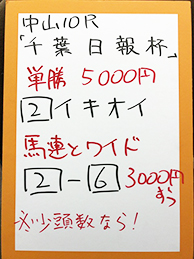 中山10R
「千葉日報杯」
単勝 5000円
2 イキオイ
馬連とワイド
2-6 3000円
ずつ
※少頭数なら!